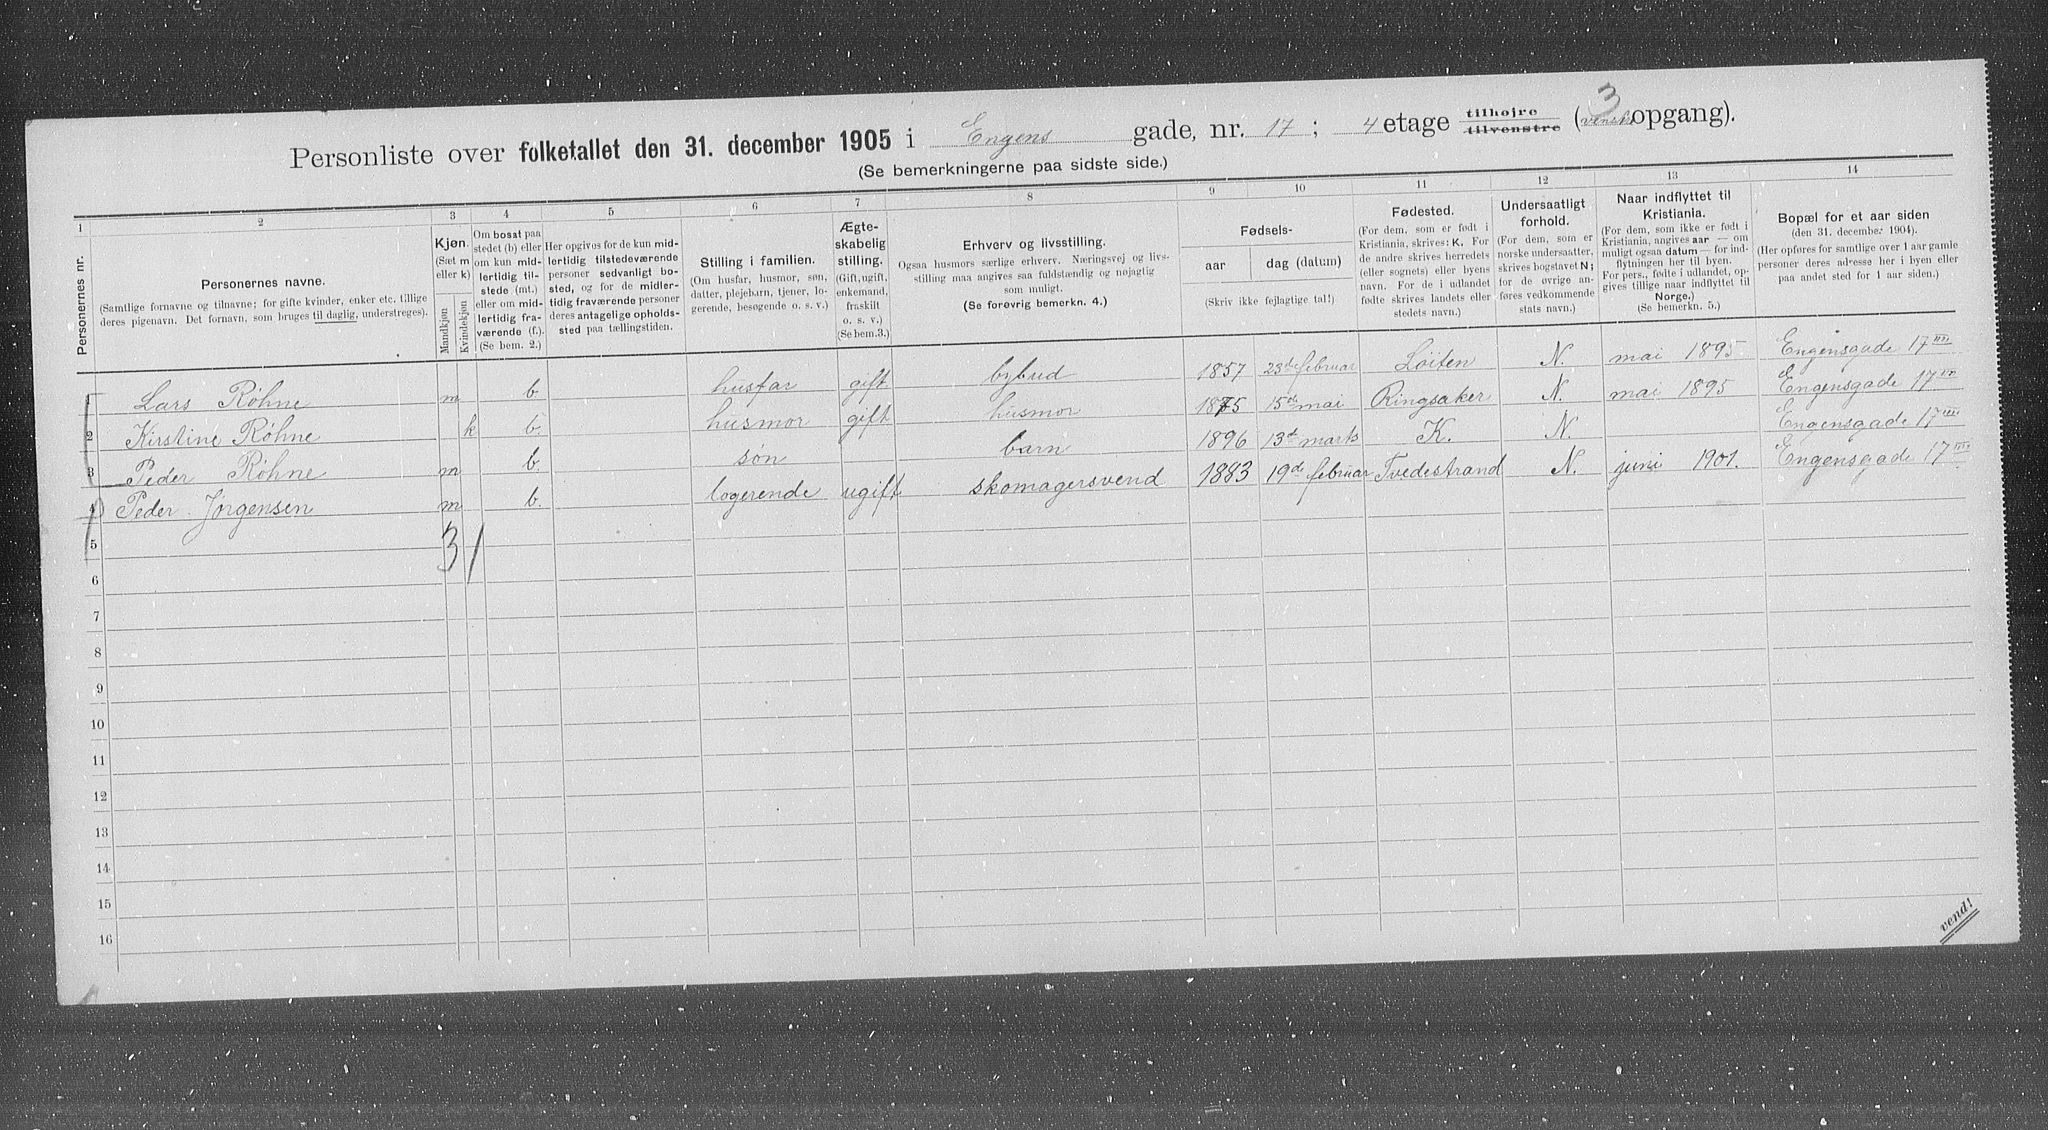 Personliste over folketallet den 31. december 1905 i Engens gade, nr. 17; 4 etage tilhøjre tilvenstre (venstre opgang).
3
(Se bemerkningerne paa sidste side.)
1 2 3 4 5 6 7 8 9 10 11 12 13 14
Personernes nr.
Personernes navne.
(Samtlige fornavne og tilnavne; for gifte kvinder, enker etc. tillige
deres pigenavn. Det fornavn, som bruges til daglig, understreges).
Kjøn.
(Sæt m
eller k)
Mandkjøn
Kvindekjøn
Om bosat paa
stedet (b) eller
om kun mid-
lertidig til-
stede (mt.)
eller om mid-
lertidig fra-
værende (f.).
(Se bem. 2.)
Her opgives for de kun mid-
lertidig tilstedeværende
personer sedvanligt bo-
sted, og for de midler-
tidig fraværende personer
deres antagelige opholds-
sted paa tællingstiden.
Stilling i familien.
(Om husfar, husmor, søn,
datter, plejebarn, tjener, lo-
gerende, besøgende o. s. v.)
Ægte-
skabelig
stilling.
(Gift, ugift,
enkemand,
fraskilt
o. s. v.)
(Se bem.3.)
Erhverv og livsstilling.
Ogsaa husmors særlige erhverv. Næringsvej og livs-
stilling maa angives saa fuldstændig og nøjagtig
som muligt.
(Se forøvrig bemerkn. 4.)
Fødsels-
aar
dag (datum)
(Skriv ikke fejlagtige tal!)
Fødested.
(For dem, som er født i
Kristiania, skrives: K. For
de andre skrives herredets
(eller sognets) eller byens
navn. For de i udlandet
fødte skrives landets eller
stedets navn.)
Undersaatligt
forhold.
(For dem, som er
norske undersaatter,
skrives bogstavet N;
for de øvrige an-
føres vedkommende
stats navn.)
Naar indflyttet til
Kristiania.
(For dem, som ikke er født i
Kristiania, angives aar — om
muligt ogsaa datum — for ind-
flytningen her til byen.
For pers., fødte i udlandet, op-
gives tillige naar indflyttet til
Norge.)
(Se bemerkn. 5.)
Bopæl for et aar siden
(den 31. december 1904).
(Her opføres for samtlige over 1 aar gamle
personer deres adresse her i byen eller
paa andet sted for 1 aar siden.)
1 Lars Røhne m b husfar gift bybud 1857 23de februar Löiten N. mai 1895 Engensgade 17 IIII
2 Kirstine Røhne k b. husmor gift husmor 1875 15de mai Ringsaker N. mai 1895 Engensgade 17 IIII
3 Peder Røhne m b. søn barn 1896 13de marts K. N. Engensgade 17 IIII
4 Peder Jørgensen m b. logerende ugift skomagersvend 1883 19de februar Tvedestrand N. juni 1901. Engensgade 17 IIII
5 3 1
6
7
8
9
10
11
12
13
14
15
16
vend!